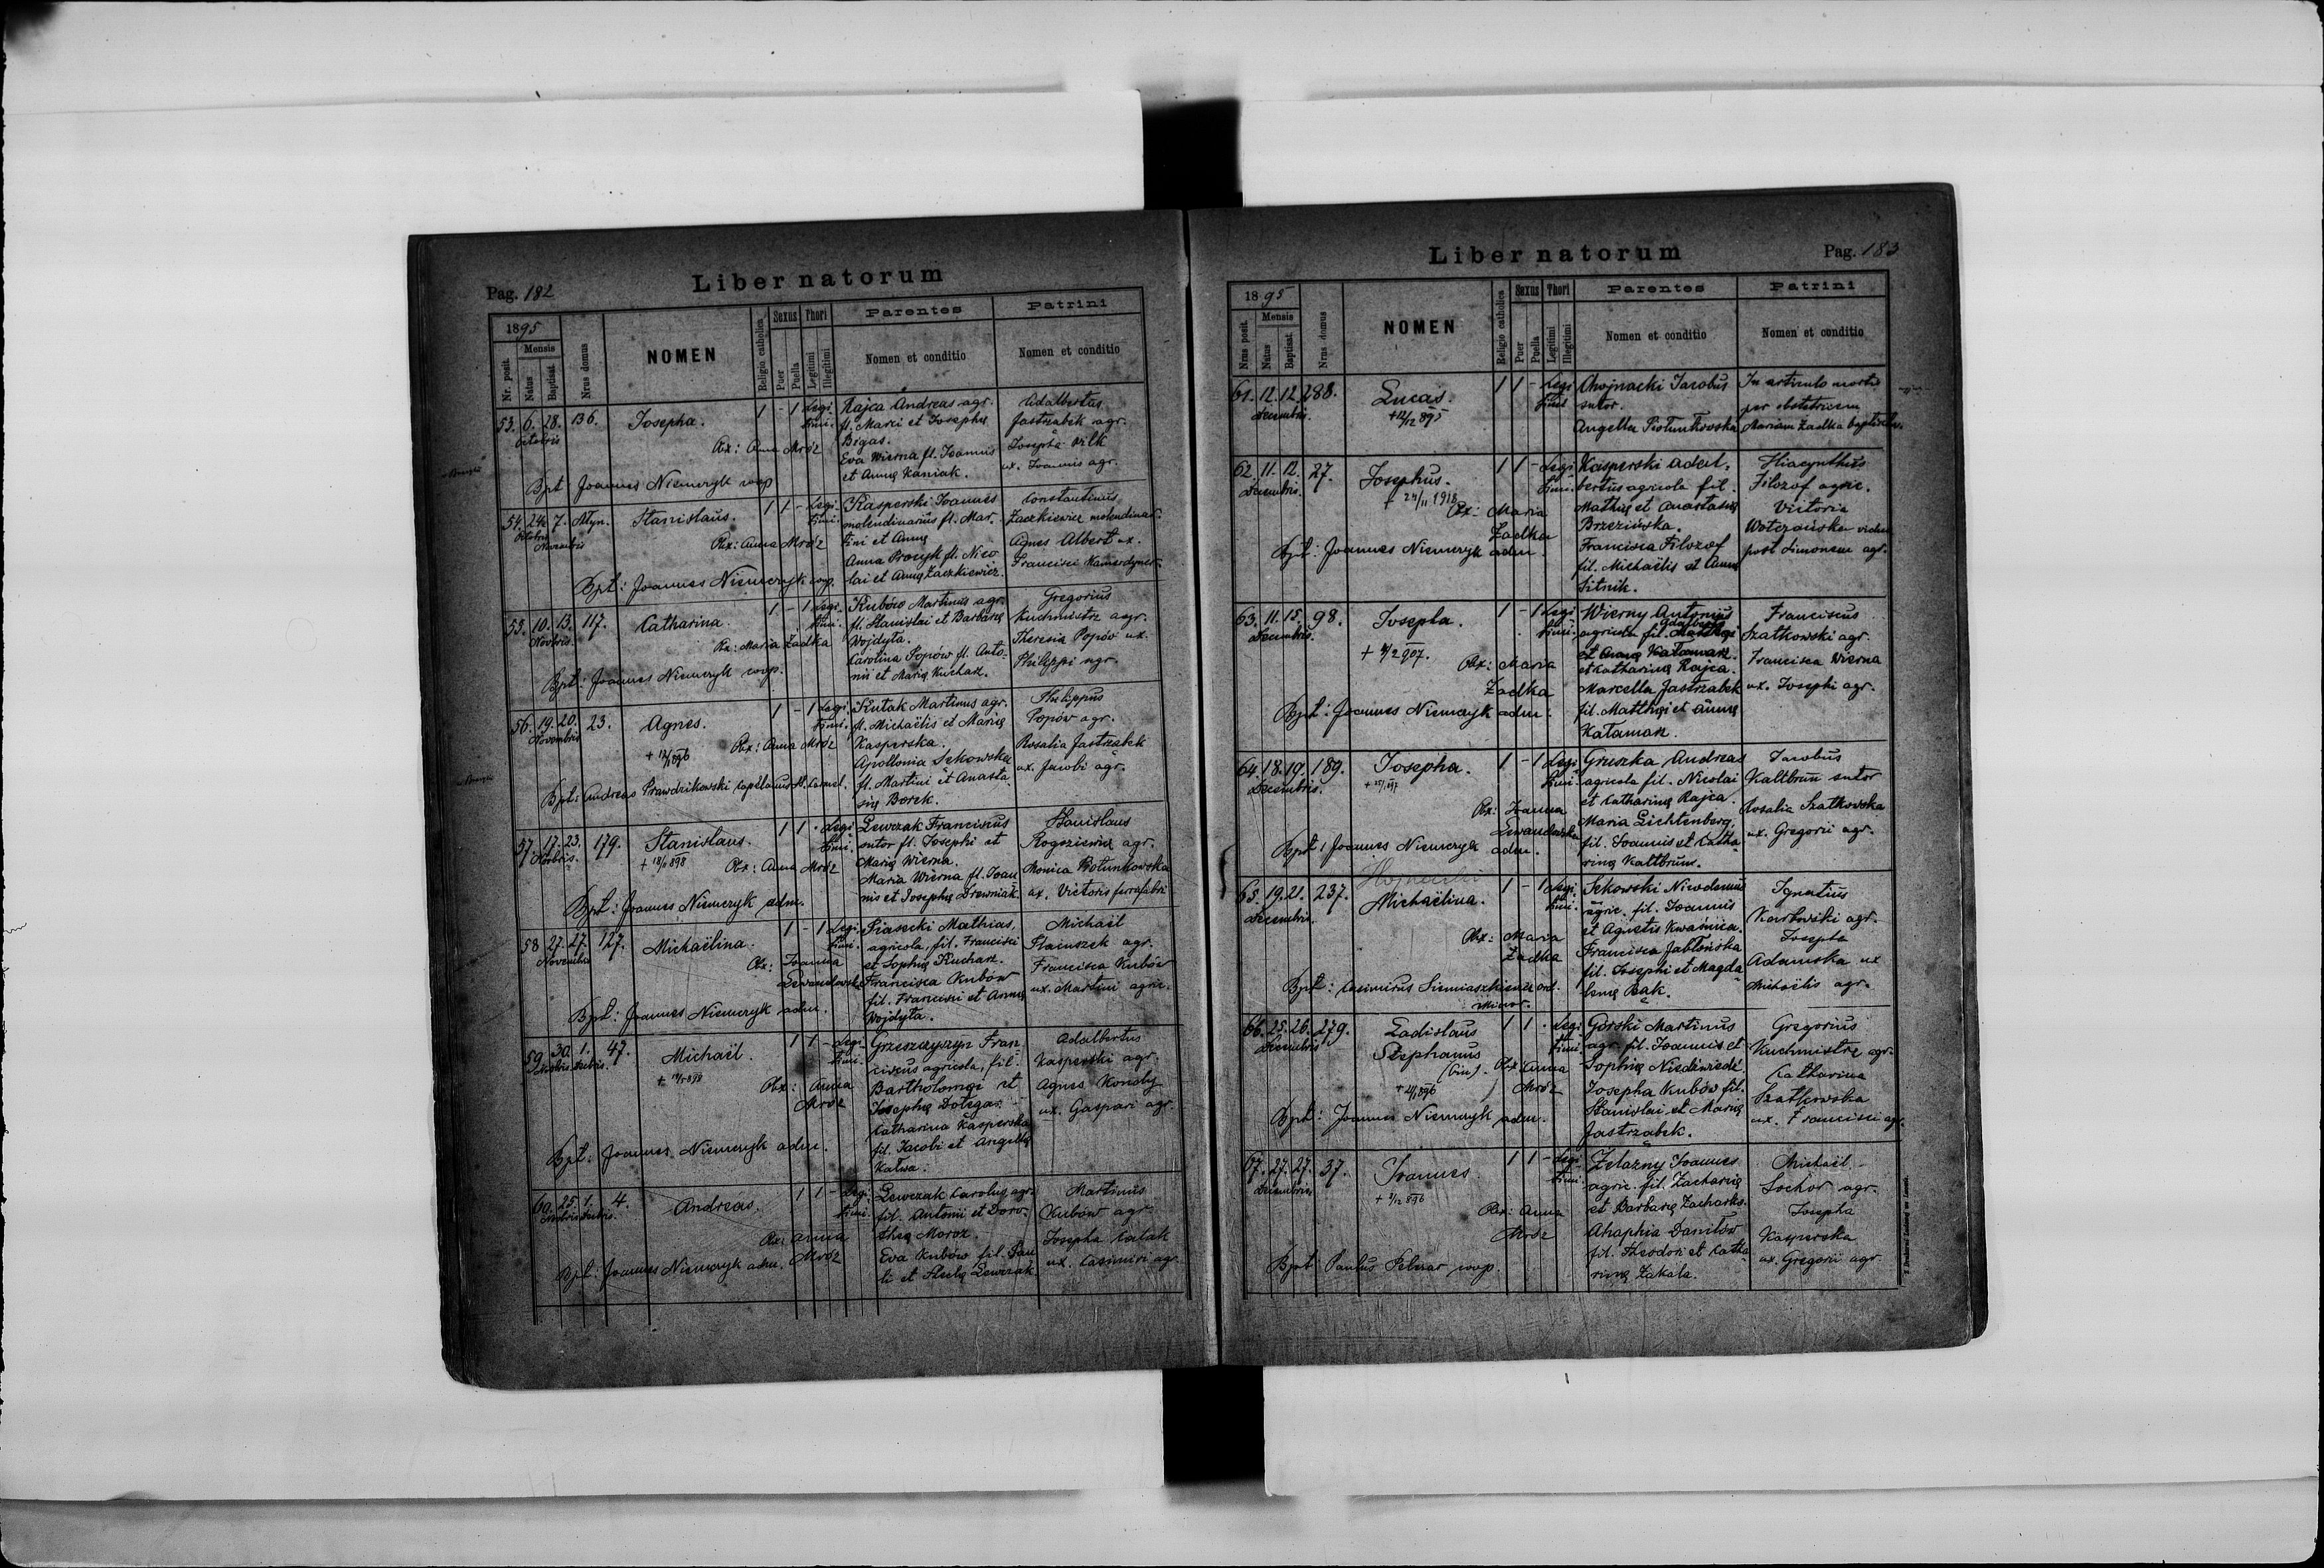 Pag. 182
Liber natorum
1895
Nr. posit.
Mensis
Natus
Baptisat.
Nrus domus
NOMEN
Religio catholica
Sexus
Puer
Puella
Thori
Legitimi
Illegitimi
Parentes
Nomen et conditio
Patrini
Nomen et conditio
53. 6. 28. 136. Josepha. 1 - 1 Legi
Octobris
timi.
Obx: Anna Mróz
Bpt Joannes Niemczyk coop
Rajca Andreas agr.
fl. Marci et Josephę
Bigas.
Eva Wierna fl. Joannis
et Annę Kaniak.
Adalbertus
Jastrzabek agr.
Josepha Wilk
ux. Joannis agr.
54. 24. 7. Młyn. Stanislaus. 1 1 - Legi
Octobris
Novembris
timi.
Obx: Anna Mróz
Bpt: Joannes Niemczyk coop.
Kasperski Joannes
molendinarius fl. Mar-
tini et Annę
Anna Procyk fl. Nico
lai et Annę Zaczkiewicz.
Constantinus
Zaczkiewicz molendinar.
Agnes Albert ux.
Francisci Kamerdyner.
55. 10. 13. 117. Catharina. 1 - 1 Legi
Novbris.
timi.
Ox: Maria Żadka
Bpt: Joannes Niemczyk coop.
Kubów Martinus agr.
fl. Stanislai et Barbarę
Wojdyta.
Carolina Popów fl. Anto-
nii et Marię Kucharz.
Gregorius
Kuchmistrz agr.
Theresia Popów ux.
Philippi agr.
56. 19. 20. 23. Agnes. 1 - 1 Legi
Novembris
timi.
Obx: Anna Mróz
Bpt: Andreas Prawdzikowski capellanus
Kutak Martinus agr.
fl. Michaëlis et Marię
Kasperska.
Apollonia Sekowska
fl. Martini et Anasta
się Borek.
Philippus
Popów agr.
Rosalia Jastrzabek
ux. Jacobi agr.
57. 17. 23. 179. Stanislaus. 1 1 - Legi
Novbris.
timi.
Obx: Anna Mróz
Bpt: Joannes Niemczyk adm.
Lewczak Franciscus
sutor fl. Josephi et
Marię Wierna.
Maria Wierna fl. Joan
nis et Josephę Drewniak
Stanislaus
Rogoziewicz agr.
Monica Piotunkowska
ux. Victoris ferrifabri
58 27. 27. 127. Michaëlina. 1 - 1 Legi
Novembris
timi.
Obx: Joanna
Lewandowska
Bpt: Joannes Niemczyk adm.
Piasecki Mathias,
agricola, fil. Francisci
et Sophię Kucharz.
Francisca Kubów
fil. Francisci et Annę
Wojdyta.
Michaël
agr.
Francisca Kubów
ux. Martini agric.
59. 30. 1. 47. Michaël. 1 1 - Legi
timi.
Obx: Anna
Mróz
Bpt: Joannes Niemczyk adm.
Grzeszczyszyn Fran
ciscus agricola, fil.
Bartholomęi et
Josephę Dotęgar.
Catharina Kasperska
fil. Jacobi et Angellę
Katwa.
Adalbertus
Kasperski agr.
Agnes
ux. Gaspari agr.
60. 25. 1. 4. Andreas. 1 1 - Legi
timi.
Obx: Anna
Mróz
Bpt: Joannes Niemczyk adm.
Lewczak Carolus agr.
fil. Antonii et Doro-
theę Moroz.
Eva Kubów fil. Pau
li et Lewczak
Martinus
Kubów agr.
Josepha Kutak
ux. Casimiri agr.
Liber natorum
Pag. 183
1895
Nrus posit.
Mensis
Natus
Baptisat.
Nrus domus
NOMEN
Religio catholica
Sexus
Puer
Puella
Thori
Legitimi
Illegitimi
Parentes
Nomen et conditio
Patrini
Nomen et conditio
61. 12. 12. 288. Lucas. 1 1 - Legi
Decembris.
timi
+ 12/12 895
Chojnacki Jacobus
sutor.
Angella Piotunkowska
In articulo mortis
per obstetricem
Mariam Żadka
62. 11. 12. 27. Josephus. 1 1 - Legi
Decembris.
timi.
+ 24/11 1918
Obx: Maria
Żadka
Bpt: Joannes Niemczyk adm.
Kasperski Adal-
bertus agricola fil.
Mathię et Anastasię
Brzezińska.
Francisca Filozof
fil. Michaëlis et Annę
Sitnik.
Hiacynthus
Filozof agric.
Victoria
vidua
post Simonem agr.
63. 11. 15. 98. Josepha. 1 - 1 Legi
Decembris.
timi.
Obx: Maria
Żadka
Bpt: Joannes Niemczyk adm.
Wierny Antonius
agricola fil. Adalberti
et Annę Katamarz.
et Katharinę Rajca.
Marcella Jastrzabek
fil. Matthęi et Annę
Katamarz.
Franciscus
Szatkowski agr.
Francisca Wierna
ux. Josephi agr.
64. 18. 19. 189. Josepha. 1 - 1 Legi
Decembris.
timi.
Obx: Joanna
Lewandowska
Bpt: Joannes Niemczyk adm.
Gruszka Andreas
agricola fil. Nicolai
et Catharinę Rajca.
Maria Lichtenberg,
fil. Joannis et Catha
rinę Kaltbrun.
Jacobus
Kaltbrun sutor
Rosalia Szatkowska
ux. Gregorii agr.
65. 19. 21. 237. Michaëlina. 1 - 1 Legi
Decembris.
timi.
Obx: Maria
Żadka
Bpt: Casimirus Siemiaszkiewicz ord.
Minor.
Sekowski Nicodemus
agric. fil. Joannis
et Agnetis Kwaśnica.
Francisca Jabłońska
fil. Josephi et Magda
lenę Bąk.
Ignatius
Karbowski agr.
Josepha
Adamska ux
Michaëlis agr.
66. 25. 26. 279. Ladislaus 1 1 - Legi
Decembris
timi.
Stephanus
(bin.)
Obx: Anna
Mróz
Bpt: Joannes Niemczyk adm.
Górski Martinus
agr. fil. Joannis et
Sophię Niedźwiedź.
Josepha Kubów fil.
Stanislai et Marię
Jastrzabek.
Gregorius
Kuchmistrz agr.
Catharina
Szatkowska
ux. Francisci agr.
67. 27. 27. 37. Joannes 1 1 - Legi
Decembris
timi.
+ 3/12 896
Obx: Anna
Mróz
Bpt Paulus coop.
Żelazny Joannes
agric. fil. Zacharię
et Barbarę Zacharko.
Ahaphia Daniłów
fil. Theodori et Catha
rinę Zakala.
Michaël
Sochór agr.
Josepha
Kasperska
ux. Gregorii agr.